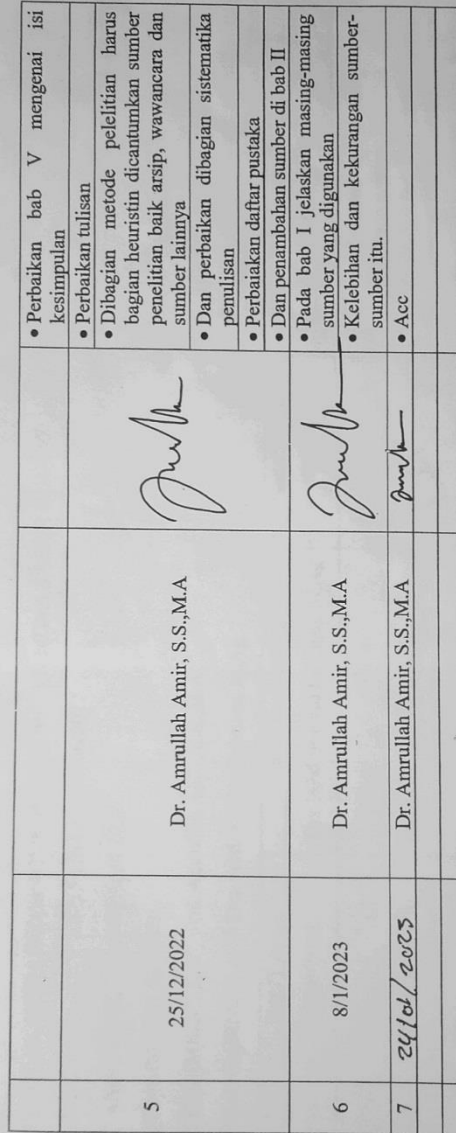 • Perbaikan bab V mengenai isi
kesimpulan
5
25/12/2022
Dr. Amrullah Amir, S.S.,M.A
• Perbaikan tulisan
• Dibagian metode pelelitian harus
bagian heuristin dicantumkan sumber
penelitian baik arsip, wawancara dan
sumber lainnya
• Dan perbaikan dibagian sistematika
penulisan
• Perbaiakan daftar pustaka
• Dan penambahan sumber di bab II
6
8/1/2023
Dr. Amrullah Amir, S.S.,M.A
• Pada bab I jelaskan masing-masing
sumber yang digunakan
• Kelebihan dan kekurangan sumber-
sumber itu.
7
24/01/2023
Dr. Amrullah Amir, S.S.,M.A
• Acc